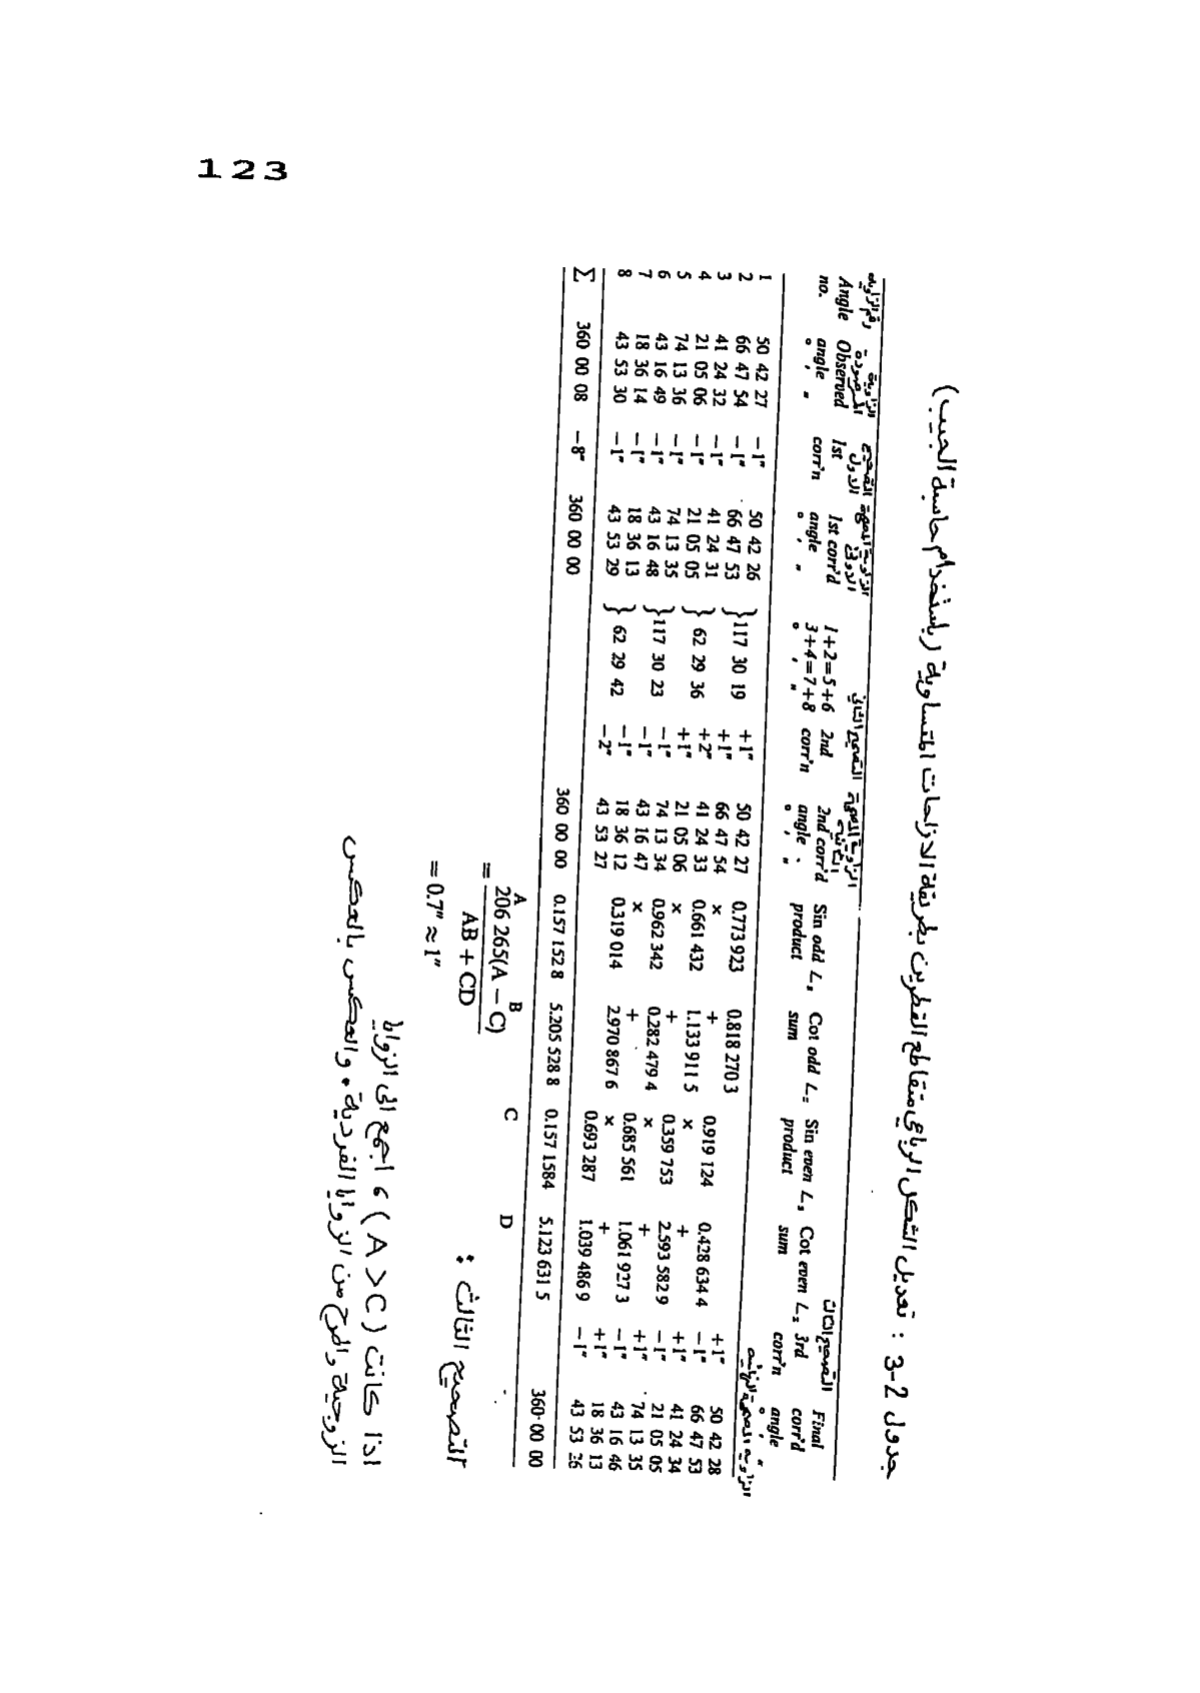 123
جدول 2-3 : تعديل الشكل الرباعي متقاطع القطرين بطريقة الازاحات المتساوية (باستخدام حاسبة الجيب)
رقم الزاوية الزاوية المرصودة التصحيح الاول الزاوية المصححة التصحيح الثاني الزاوية المصححة الثانية التصحيح الثالث الزاوية المصححة النهائية
Angle no. Observed angle ° ′ ″ 1st corr'n 1st corr'd angle ° ′ ″ 1+2=5+6 3+4=7+8 ° ′ ″ 2nd corr'n 2nd corr'd angle ° ′ ″ Sin odd ∠s product Cot odd ∠s sum Sin even ∠s product Cot even ∠s sum 3rd corr'n Final corr'd angle ° ′ ″
1 50 42 27 −1″ 50 42 26 } 117 30 19 +1″ 50 42 27 0.773 923 0.818 270 3 +1″ 50 42 28
2 66 47 54 −1″ 66 47 53 +1″ 66 47 54 × + 0.919 124 0.428 634 4 −1″ 66 47 53
3 41 24 32 −1″ 41 24 31 } 62 29 36 +2″ 41 24 33 0.661 432 1.133 911 5 × + +1″ 41 24 34
4 21 05 06 −1″ 21 05 05 +1″ 21 05 06 × + 0.359 753 2.593 582 9 −1″ 21 05 05
5 74 13 36 −1″ 74 13 35 } 117 30 23 −1″ 74 13 34 0.962 342 0.282 479 4 × + +1″ 74 13 35
6 43 16 49 −1″ 43 16 48 −1″ 43 16 47 × + 0.685 561 1.061 927 3 −1″ 43 16 46
7 18 36 14 −1″ 18 36 13 } 62 29 42 −1″ 18 36 12 0.319 014 2.970 867 6 × + +1″ 18 36 13
8 43 53 30 −1″ 43 53 29 −2″ 43 53 27 0.693 287 1.039 486 9 −1″ 43 53 26
Σ 360 00 08 −8″ 360 00 00 360 00 00 0.157 152 8 5.205 528 8 0.157 1584 5.123 631 5 360 00 00
A B C D
التصحيح الثالث :
= 206 265(A − C) / AB + CD
= 0.7″ ≈ 1″
اذا كانت (A > C) ، اجمع الى الزوايا
الزوجية واطرح من الزوايا الفردية . والعكس بالعكس